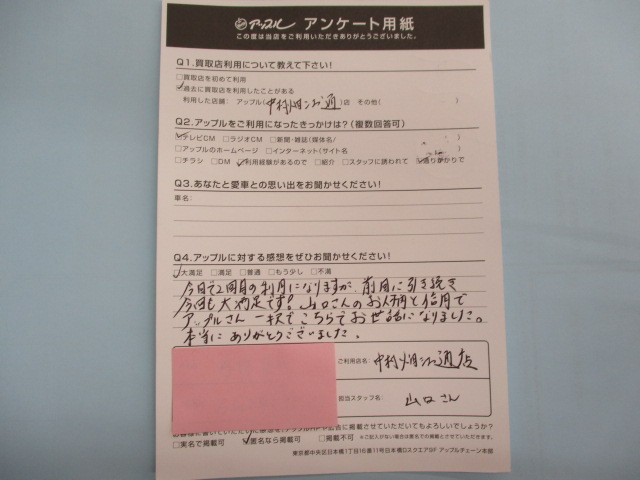 アップル アンケート用紙
この度は当店をご利用いただきありがとうございました。
Q1.買取店利用について教えて下さい!
□買取店を初めて利用
☑過去に買取店を利用したことがある
利用した店舗: アップル(中村畑江通)店 その他( )
Q2.アップルをご利用になったきっかけは?(複数回答可)
☑テレビCM □ラジオCM □新聞・雑誌(媒体名/ )
□アップルのホームページ □インターネット(サイト名 )
□チラシ □DM ☑利用経験があるので □紹介 □スタッフに誘われて ☑通りがかりで
Q3.あなたと愛車との思い出をお聞かせください!
車名:
Q4.アップルに対する感想をぜひお聞かせください!
☑大満足 □満足 □普通 □もう少し □不満
今日で2回目の利用になりますが、前回に引き続き
今回も大満足です!山口さんのお人柄と信用で
アップルさん一択でこちらでお世話になりました。
本当にありがとうございました。
ご利用店名: 中村畑江通店
担当スタッフ名: 山口さん
お客様に書いていただいた感想を、アップルHPや広告に掲載させていただいてもよろしいでしょうか?
□実名で掲載可 ☑匿名なら掲載可 □掲載不可 ※ご記入がない場合は匿名での掲載とさせていただきます。
東京都中央区日本橋1丁目16番11号日本橋Dスクエア9F アップルチェーン本部